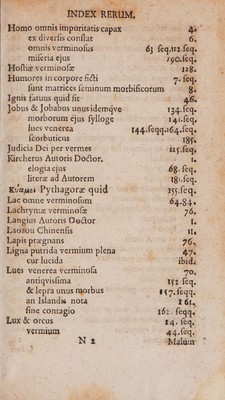 INDEX RERUM.
Homo omnis impuritatis capax 4.
ex diversis constat 6.
omnis verminosus 63 seq.112.seq.
miseria ejus 190.seq.
Hostiæ verminosæ 128.
Humores in corpore ficti 7. seq.
sunt matrices seminum morbificorum 8.
Ignis fatuus quid sit 46.
Jobus & Jobabus unus idemqve 134.seq.
morborum ejus sylloge 141.seq.
lues venerea 144.seqq.164.seq.
scorbuticus 185.
Judicia Dei per vermes 125.seq.
Kircherus Autoris Doctor. 1.
elogia ejus 68. seq.
literæ ad Autorem 181.seq.
κύαμοι Pythagoræ quid 155.seq.
Lac omne verminosum 64.84.
Lachrymæ verminosæ 76.
Langius Autoris Doctor 1.
Laozou Chinensis 11.
Lapis prægnans 76.
Ligna putrida vermium plena 47.
cur lucida ibid.
Lues venerea verminosa 70.
antiqvissima 152 seq.
& lepra unus morbus 157.seqq.
an Islandis nota 161.
sine contagio 162. seqq.
Lux & ortus 14. seq.
vermium 44.seq.
N 2 Malum